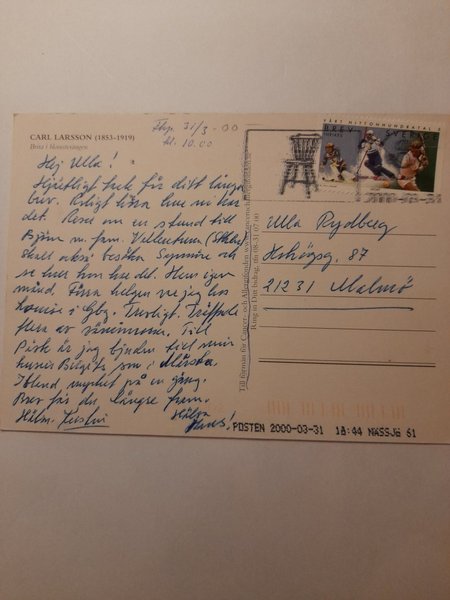 CARL LARSSON (1853-1919)
Brita i blomsteringen
31/3-00
kl. 10.00
VÅRT NITTONHUNDRATAL
BREV
SVERIGE
Hej Ulla!
Hjärtligt tack för ditt långa
brev. Roligt höra hur ni har
det. Reser om en stund till
Björn m. fam.
skall också besöka
se hur hon har det. Hem igen
månd. Förra helgen var jag hos
Louise i Gbg. Trevligt. Träffade
flera av väninnorna. Till
Påsk är jag bjuden till min
kusin Birgitta som i Märsta.
Ibland mycket på en gång.
Brev får du längre fram.
Hälsn. Kerstin
Hälsa
Hans!
Till förmån för Cancer- och Allergifonden
Ring in Ditt bidrag, tfn 08-31 07 00
Ulla Rydberg
87
21231 Malmö
POSTEN 2000-03-31 18:44 NÄSSJÖ 61